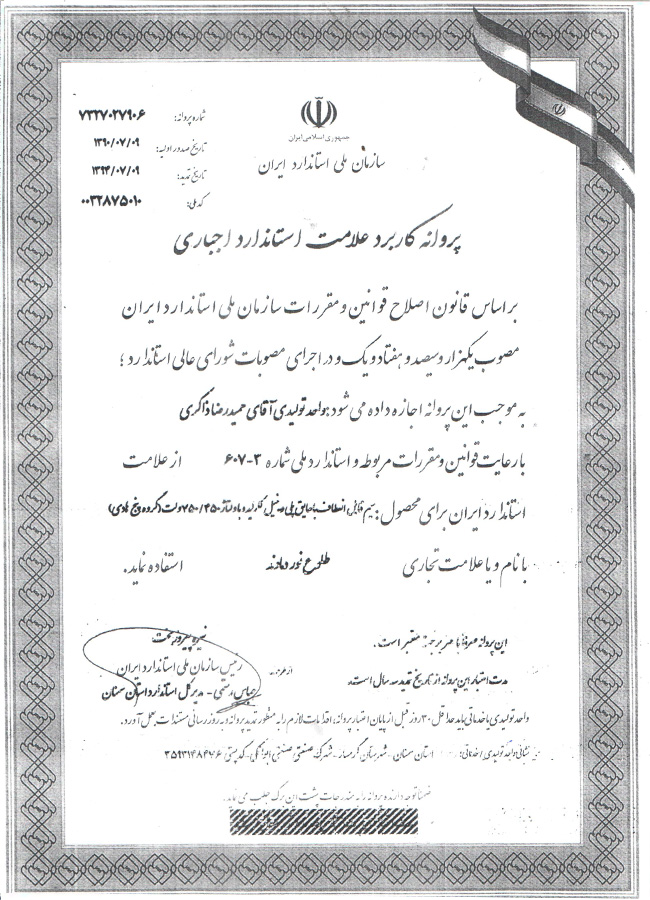 جمهوری اسلامی ایران
سازمان ملی استاندارد ایران
شماره پروانه: ۷۳۲۷۰۲۷۹۰۶
تاریخ صدور اولیه: ۱۳۹۰/۰۷/۰۹
تاریخ تمدید: ۱۳۹۴/۰۷/۰۹
کد ملی: ۰۰۳۲۸۷۵۰۱۰
پروانه کاربرد علامت استاندارد اجباری
بر اساس قانون اصلاح قوانین و مقررات سازمان ملی استاندارد ایران
مصوب یکهزار و سیصد و هفتاد و یک و در اجرای مصوبات شورای عالی استاندارد ؛
به موجب این پروانه اجازه داده می شود بواحد تولیدی آقای حمیدرضا ذاکری
با رعایت قوانین و مقررات مربوطه و استاندارد ملی شماره ۳-۶۰۷ از علامت
استاندارد ایران برای محصول: سیم قابل انعطاف با عایق پلی وینیل کلرید و با ولتاژ ۷۵۰/۴۵۰ ولت (گروه پنج هادی)
با نام و یا علامت تجاری طلوع نور دماوند استفاده نماید.
این پروانه صرفا با مهر برجسته معتبر است.
مدت اعتبار این پروانه از تاریخ تمدید سه سال است.
نیره پیروزبخت
رئیس سازمان ملی استاندارد ایران
از طرف
عباس رستمی - مدیر کل استاندارد استان سمنان
واحد تولیدی یا خدماتی باید حداقل ۳۰ روز قبل از پایان اعتبار پروانه، اقدامات لازم را به منظور تمدید پروانه و به روز رسانی مستندات بعمل آورد.
نشانی واحد تولیدی / خدماتی: استان سمنان - شهرستان گرمسار - شهرک صنعتی - کد پستی ۳۵۹۳۱۴۸۴۷۶
ضمنا توجه دارنده پروانه را به مندرجات پشت این برگ جلب می نماید.